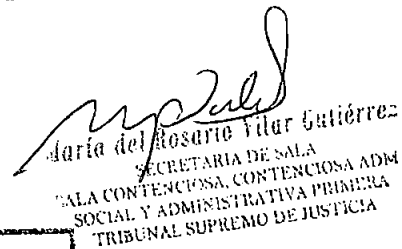 María del Rosario Vilar Gutiérrez
SECRETARIA DE SALA
SALA CONTENCIOSA, CONTENCIOSA ADM
SOCIAL Y ADMINISTRATIVA PRIMERA
TRIBUNAL SUPREMO DE JUSTICIA